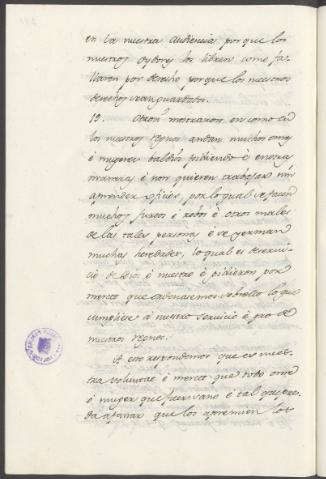 en la nuestra audiencia, por que los
nuestros oydores los libren como fa-
llaren por derecho, porque los nuestros
derechos sean guardados.
19. Otrosi mostraron en como en
los nuestros regnos andan muchos omes
é mugeres baldios pidiendo é en otras
maneras é non quieren trabajar nin
aprender oficios, por lo qual se facen
muchos furtos é robos é otros males
de las tales personas é se yerman
muchas heredades, lo qual es deservi-
cio de Dios é nuestro é pidieron por
merced que ordenaremos sobrello lo que
cumpliere á nuestro servicio é pro de
nuestros regnos.
A esto respondemos que es nues-
tra voluntat é merced que todo ome
é muger que fuere sano é tal que pue-
da afanar que los apremien los